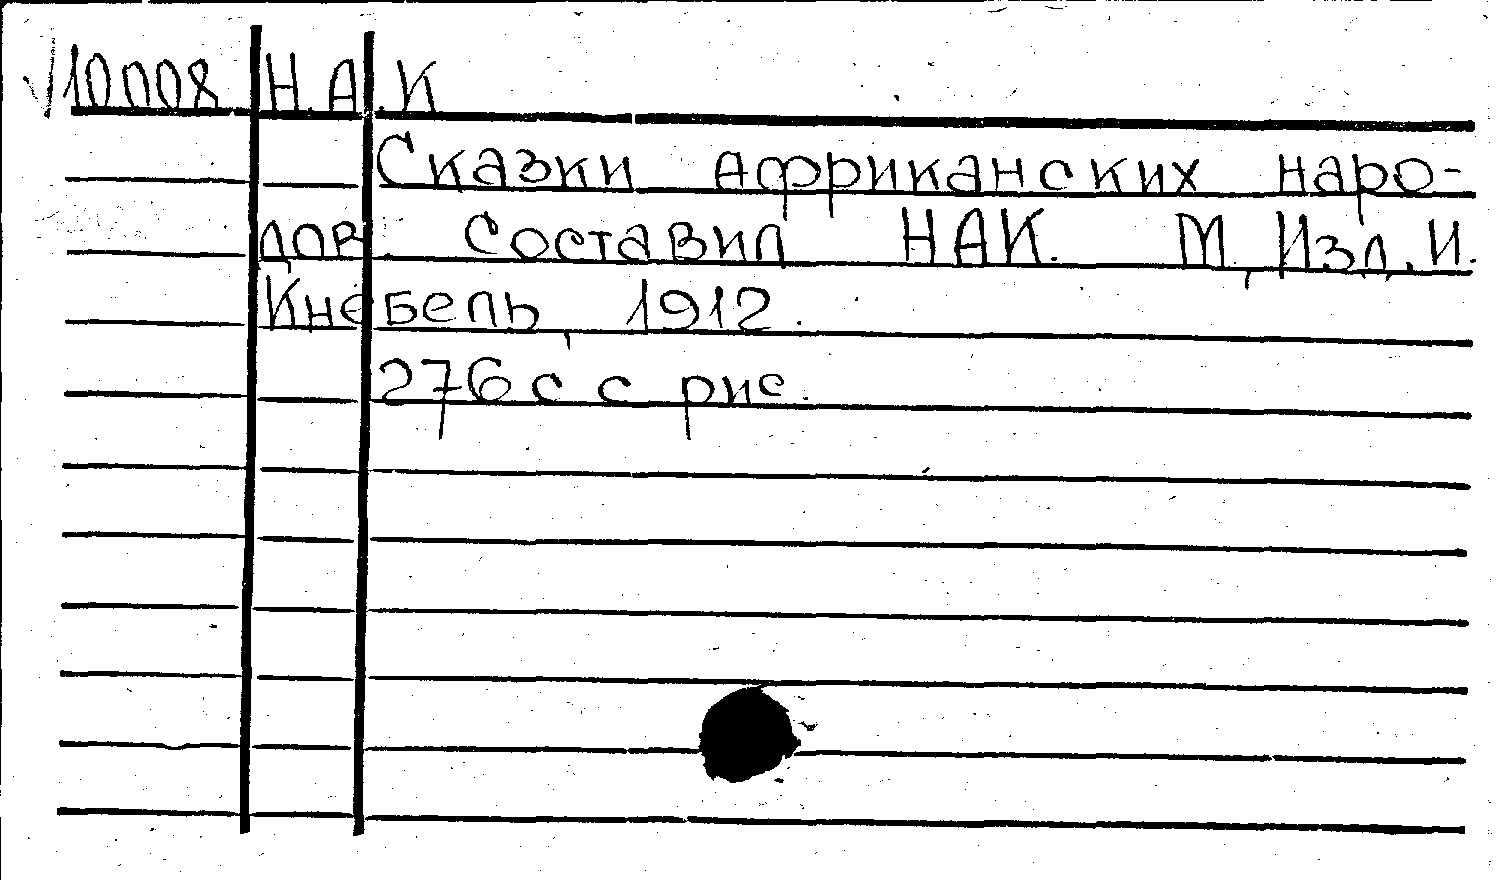 √10008 Н.А.К
Сказки африканских наро-
дов. Составил НАК. М, Изд. И.
Кнебель, 1912.
276 с с рис.